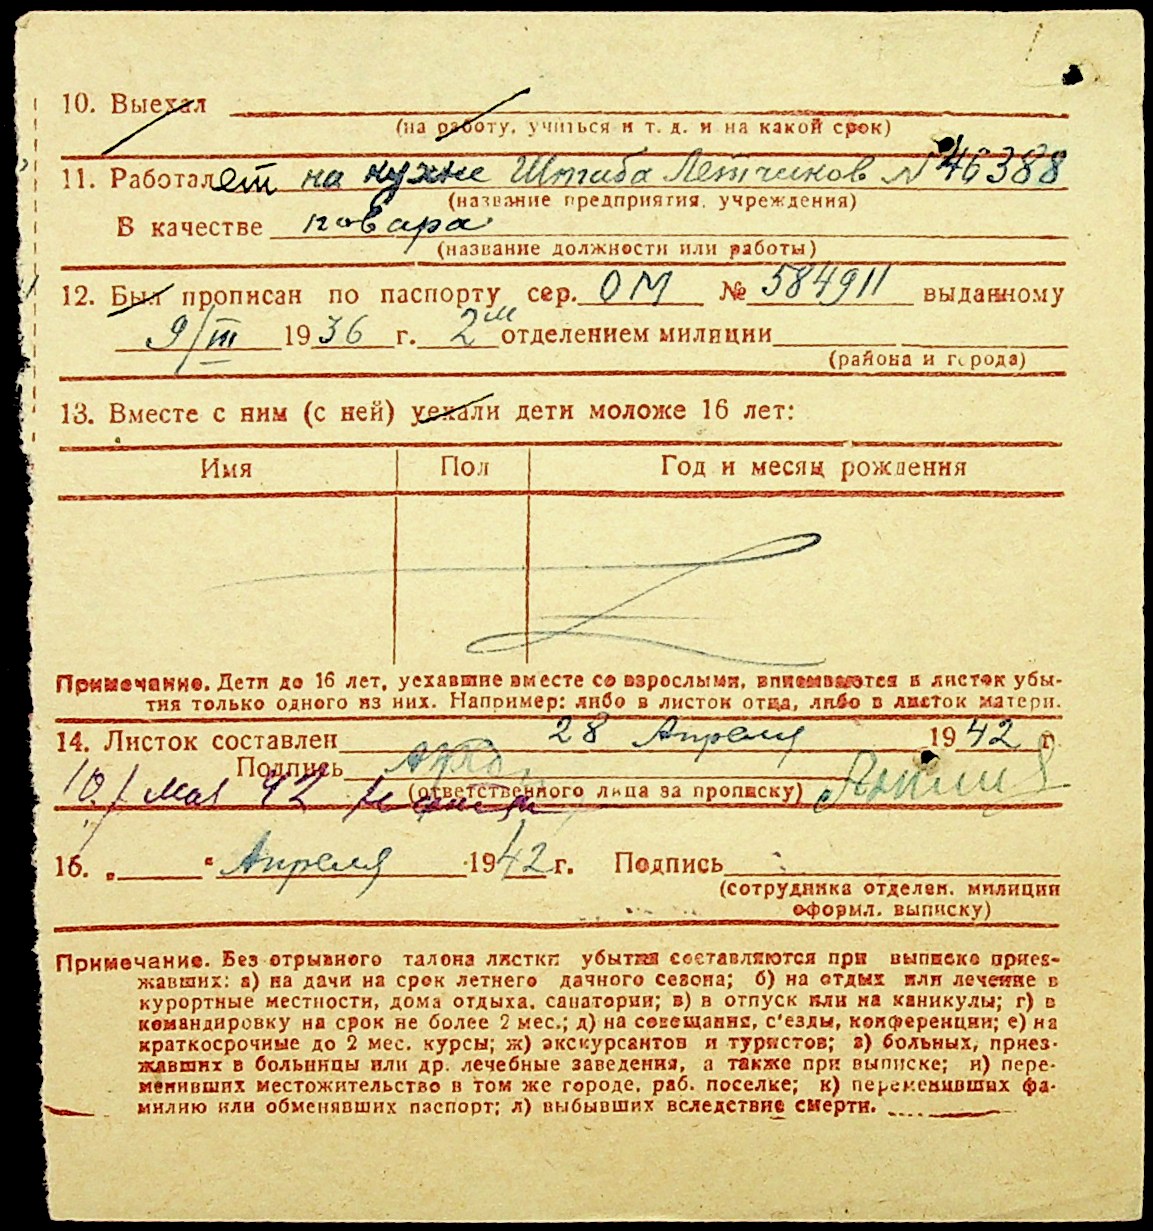 10. Выехал
(на работу, учиться и т. д. и на какой срок)
11. Работает на кухне Штаба Летчиков № 46388
(название предприятия, учреждения)
В качестве повара
(название должности или работы)
12. Был прописан по паспорту сер. ОМ № 584911 выданному
9/III 1936 г. 2м отделением милиции
(района и города)
13. Вместе с ним (с ней) уехали дети моложе 16 лет:
Имя Пол Год и месяц рождения
Примечание. Дети до 16 лет, уехавшие вместе со взрослыми, вписываются в листок убы-
тия только одного из них. Например: либо в листок отца, либо в листок матери.
14. Листок составлен 28 Апреля 1942 г.
Подпись
(ответственного лица за прописку)
10/ мая 42
16. „ “ Апреля 1942 г. Подпись
(сотрудника отделен. милиции
оформл. выписку)
Примечание. Без отрывного талона листки убытия составляются при выписке приез-
жавших: а) на дачи на срок летнего дачного сезона; б) на отдых или лечение в
курортные местности, дома отдыха, санатории; в) в отпуск или на каникулы; г) в
командировку на срок не более 2 мес.; д) на совещания, с'езды, конференции; е) на
краткосрочные до 2 мес. курсы; ж) экскурсантов и туристов; з) больных, приез-
жавших в больницы или др. лечебные заведения, а также при выписке; и) пере-
менивших местожительство в том же городе, раб. поселке; к) переменивших фа-
милию или обменявших паспорт; л) выбывших вследствие смерти.